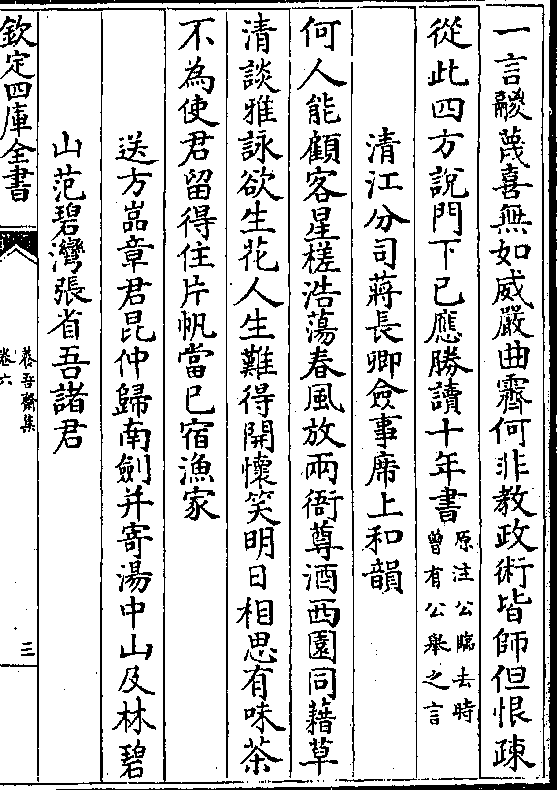 一言鬷蔑喜無如威嚴曲霽何非教政術皆師但恨疎
從此四方說門下已應勝讀十年書原注公臨去時曾有公舉之言
清江分司蔣長卿僉事席上和韻
何人能顧客星槎浩蕩春風放兩衙尊酒西園同藉草
清談雅詠欲生花人生難得開懷笑明日相思有味茶
不為使君留得住片帆當已宿漁家
送方嵓章君昆仲歸南劍并寄湯中山及林碧
山范碧灣張省吾諸君
欽定四庫全書
養吾齋集
卷六
三